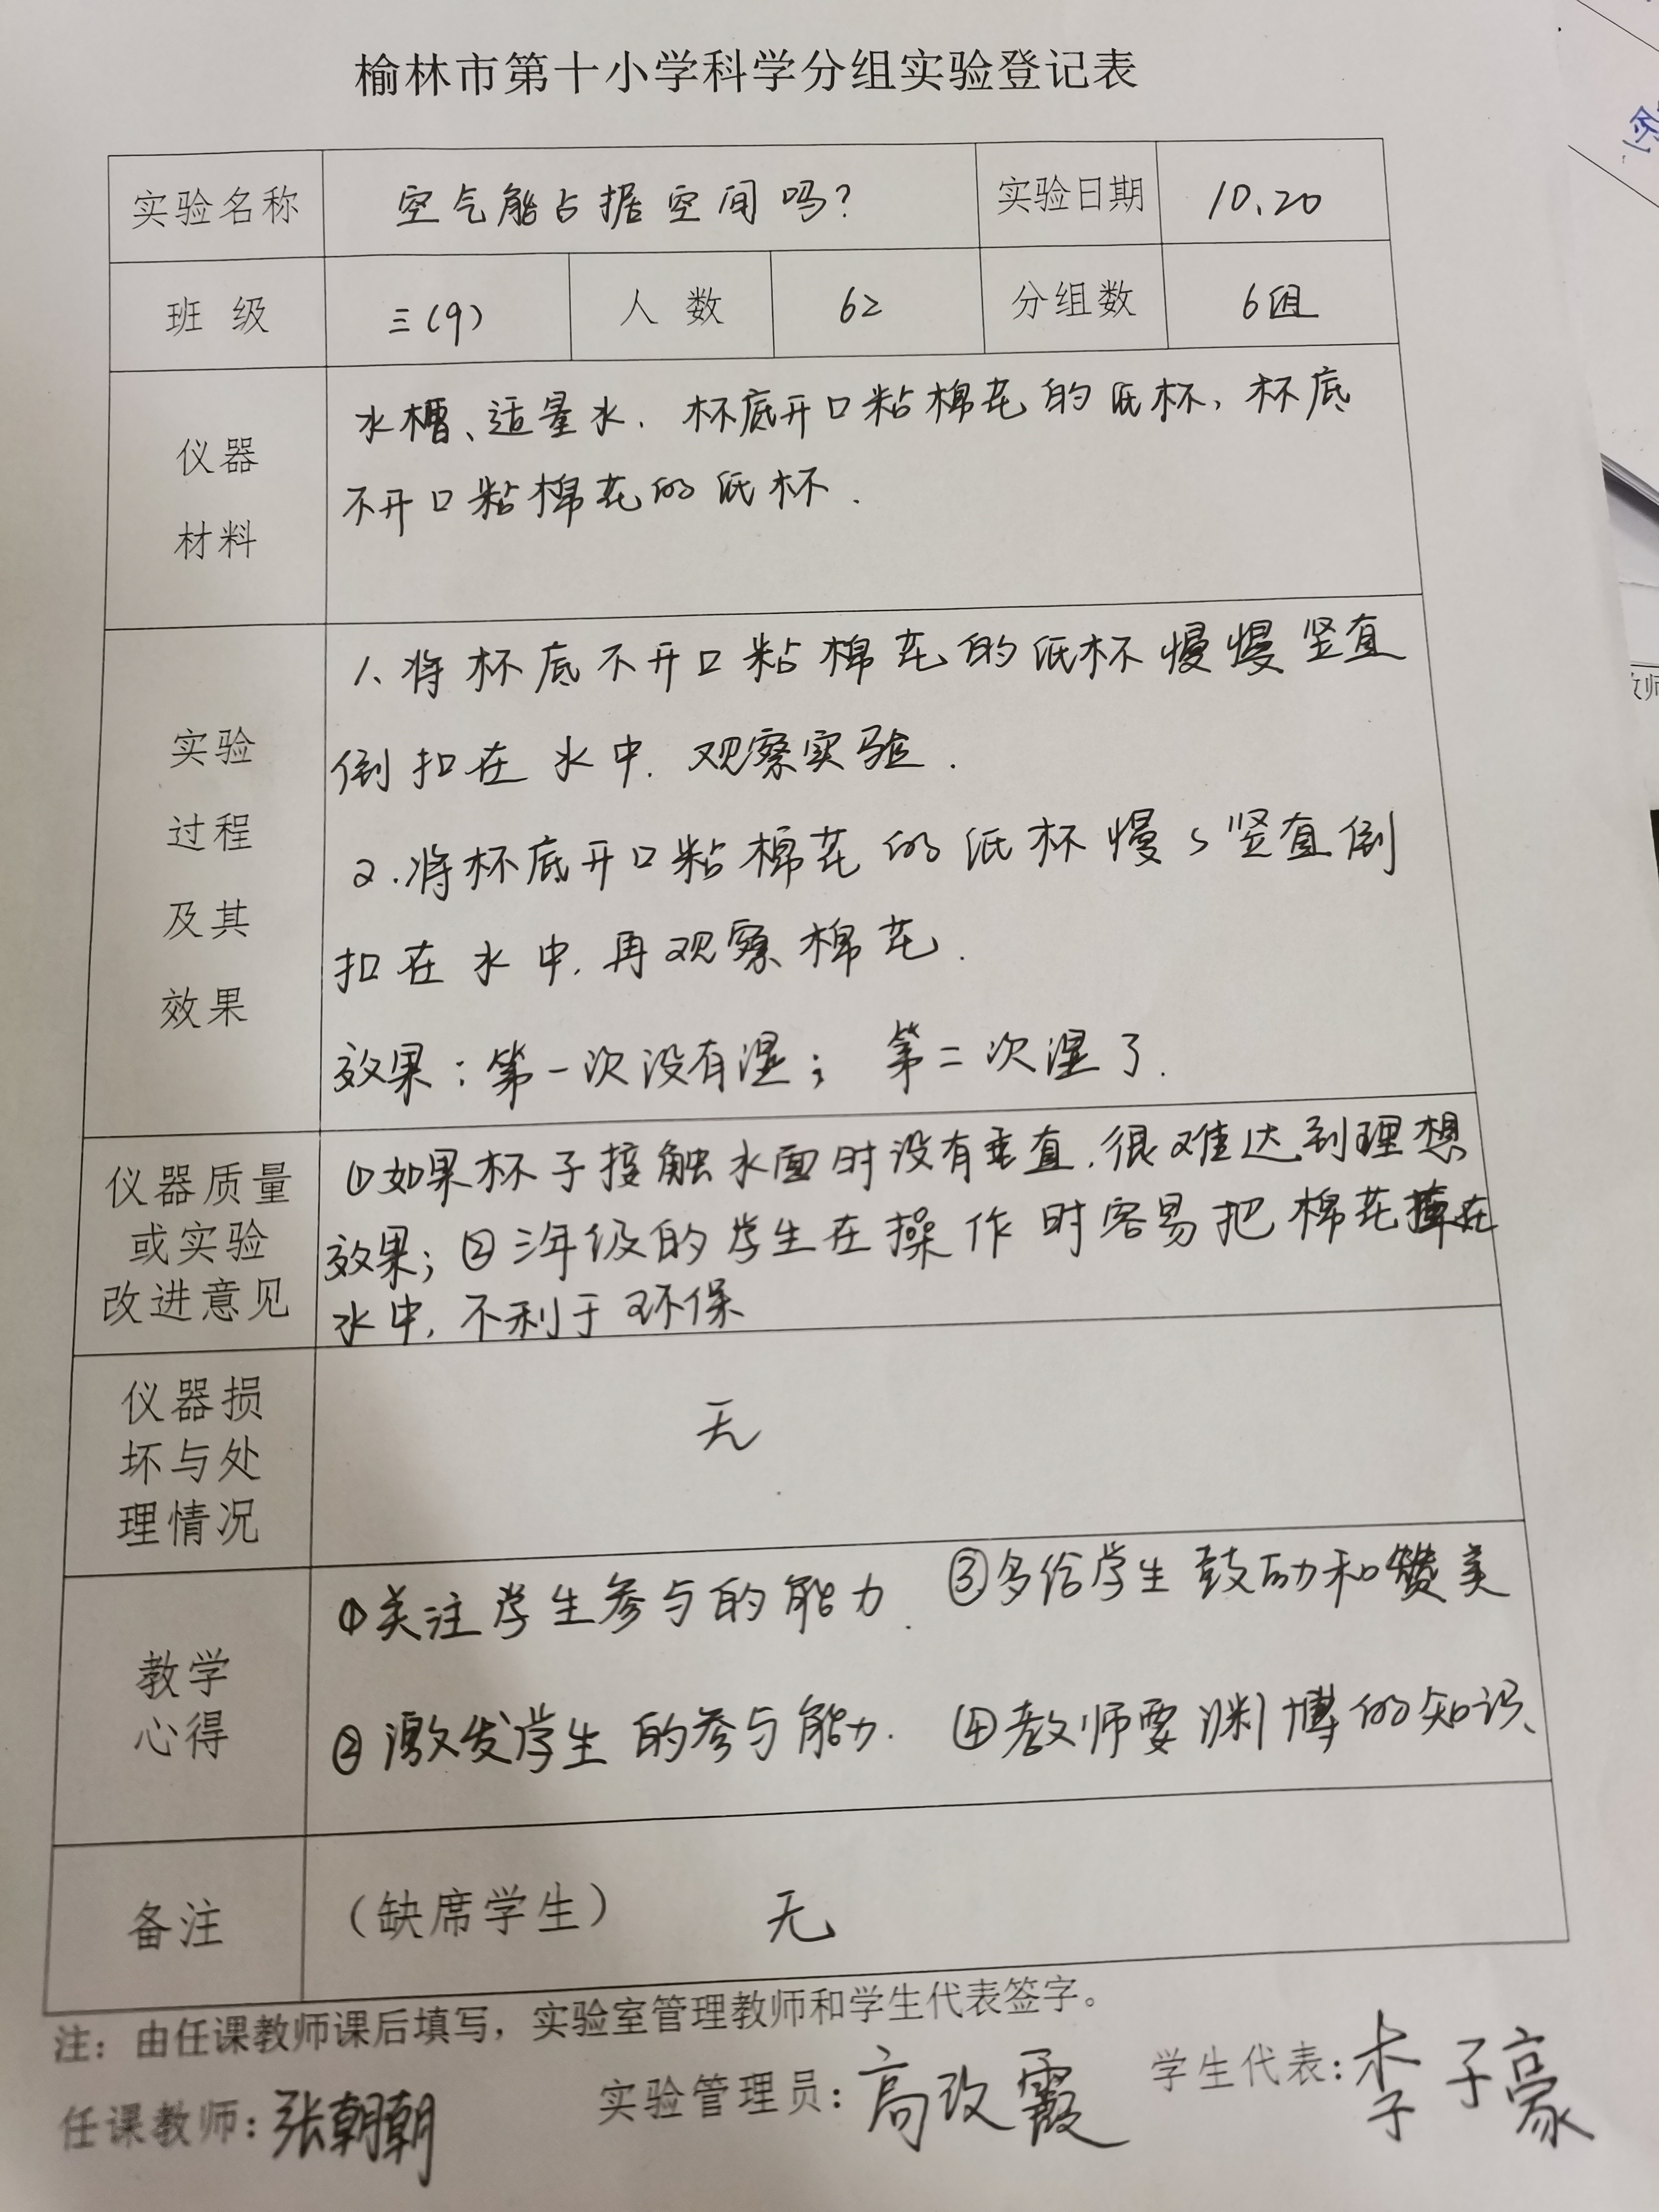 榆林市第十小学科学分组实验登记表
实验名称 空气能占据空间吗? 实验日期 10.20
班 级 三(9) 人 数 62 分组数 6组
仪器
材料
水槽、适量水.杯底开口粘棉花的纸杯、杯底
不开口粘棉花的纸杯.
实验
过程
及其
效果
1、将杯底不开口粘棉花的纸杯慢慢竖直
倒扣在水中.观察实验.
2.将杯底开口粘棉花的纸杯慢々竖直倒
扣在水中,再观察棉花.
效果:第一次没有湿; 第二次湿了.
仪器质量
或实验
改进意见
①如果杯子接触水面时没有垂直.很难达到理想
效果;②三年级的学生在操作时容易把棉花掉在
水中,不利于环保
仪器损
坏与处
理情况
无
教学
心得
①关注学生参与的能力. ③多给学生鼓励和赞美
②激发学生的参与能力. ④教师要渊博的知识、
备注 (缺席学生) 无
注:由任课教师课后填写,实验室管理教师和学生代表签字。
任课教师:张朝朝 实验管理员:高改霞 学生代表:李子豪